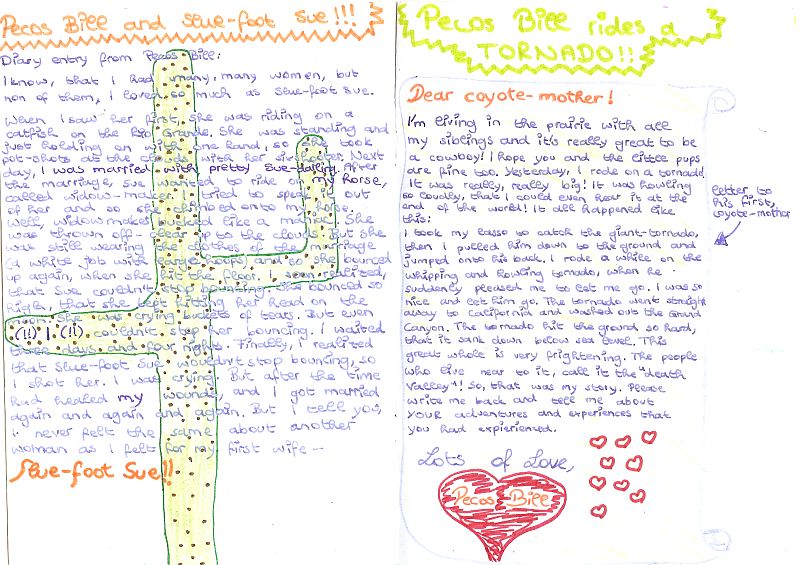 Pecos Bill and Slue-foot Sue!!!
Diary entry from Pecos Bill:
I know, that I had many, many women, but
non of them, I loved so much as Slue-foot Sue.
When I saw her first, she was riding on a
catfish on the Rio Grande. She was standing and
just holding on with one hand, so she took
pot-shots at the clouds with her six-shooter. Next
day, I was married with pretty Sue-darling. After
the marriage, Sue wanted to ride on my horse,
called widow-maker. I tried to speak it out
of her and so she climbed onto my horse.
Well, widowmaker kicked like a mad. She
was thrown off - clear up to the clouds. But she
was still wearing the clothes of the marriage
(a white job with large hoops and so she bounced
up again, when she hit the floor. I soon realized,
that Sue couldn't stop bouncing. She bounced so
high, that she kept hitting her head on the
moon. She was crying buckets of tears. But even
(!!) I (!!) couldn't stop her bouncing. I waited
three days and four nights. Finally, I realized
that Slue-foot Sue wouldn't stop bouncing, so
I shot her. I was crying. But after the time
had healed my wounds, and I got married
again and again and again. But I tell you,
I never felt the same about another
woman as I felt for my first wife -
Slue-foot Sue!!
Pecos Bill rides a
TORNADO!!
Dear coyote-mother!
I'm living in the prairie with all
my siblings and it's really great to be
a cowboy! I hope you and the little pups
are fine too. Yesterday, I rode on a tornado.
It was really, really big! It was howling
so loudly, that I could even hear it at the
end of the world! It all happened like
this:
I took my lasso to catch the giant-tornado,
then I pulled him down to the ground and
jumped onto his back. I rode a while on the
whipping and howling tornado, when he
suddenly pleased me to let me go. I was so
nice and let him go. The tornado went straight
away to California and washed out the Grand
Canyon. The tornado hit the ground so hard,
that it sank down below sea level. This
great whole is very frightening. The people
who live near to it, call it the "death
Valley"! So, that was my story. Please
write me back and tell me about
your adventures and experiences that
you had expierienced.
Lots of Love,
Pecos Bill
letter to
his first,
coyote-mother